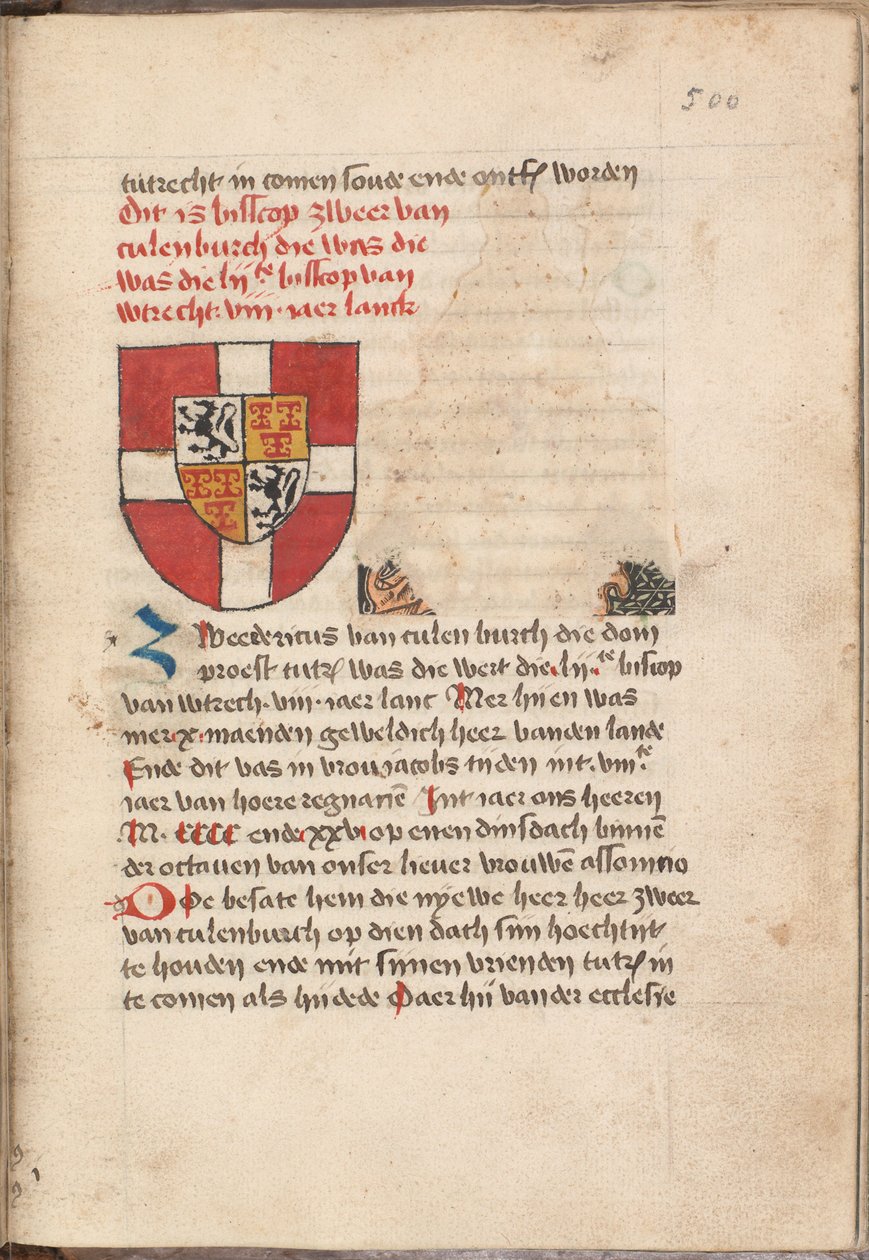 500
tutrecht in comen soude ende ontfꝭ worden
Dit is bisscop zweer van
culenburch die was die
was die lijᵗᵉ bisscop van
wtrecht · viij · iaer lanck
Zweedericus van culenburch die dom
proest tutrꝭ was die wert die · lij · ᵗᵉ biscop
van wtrech · viij · iaer lanc Mer hij en was
mer · x · maenden geweldich heer vanden lande
Ende dit was in vrou jacobs tijden int · viijᵗᵉ ·
iaer van hoere regnariē Int iaer ons heeren
· M · CCCC ende xxvi op enen dinsdach binnē
der octauen van onser lieuer vrouwē assomtio
Doe besate hem die nyewe heer heer zweer
van culenburch op dien dach sijn hoechtijt
te houden ende mit sijnen vrienden tutrꝭ in
te comen als hij dede Daer hij van der ecclesie